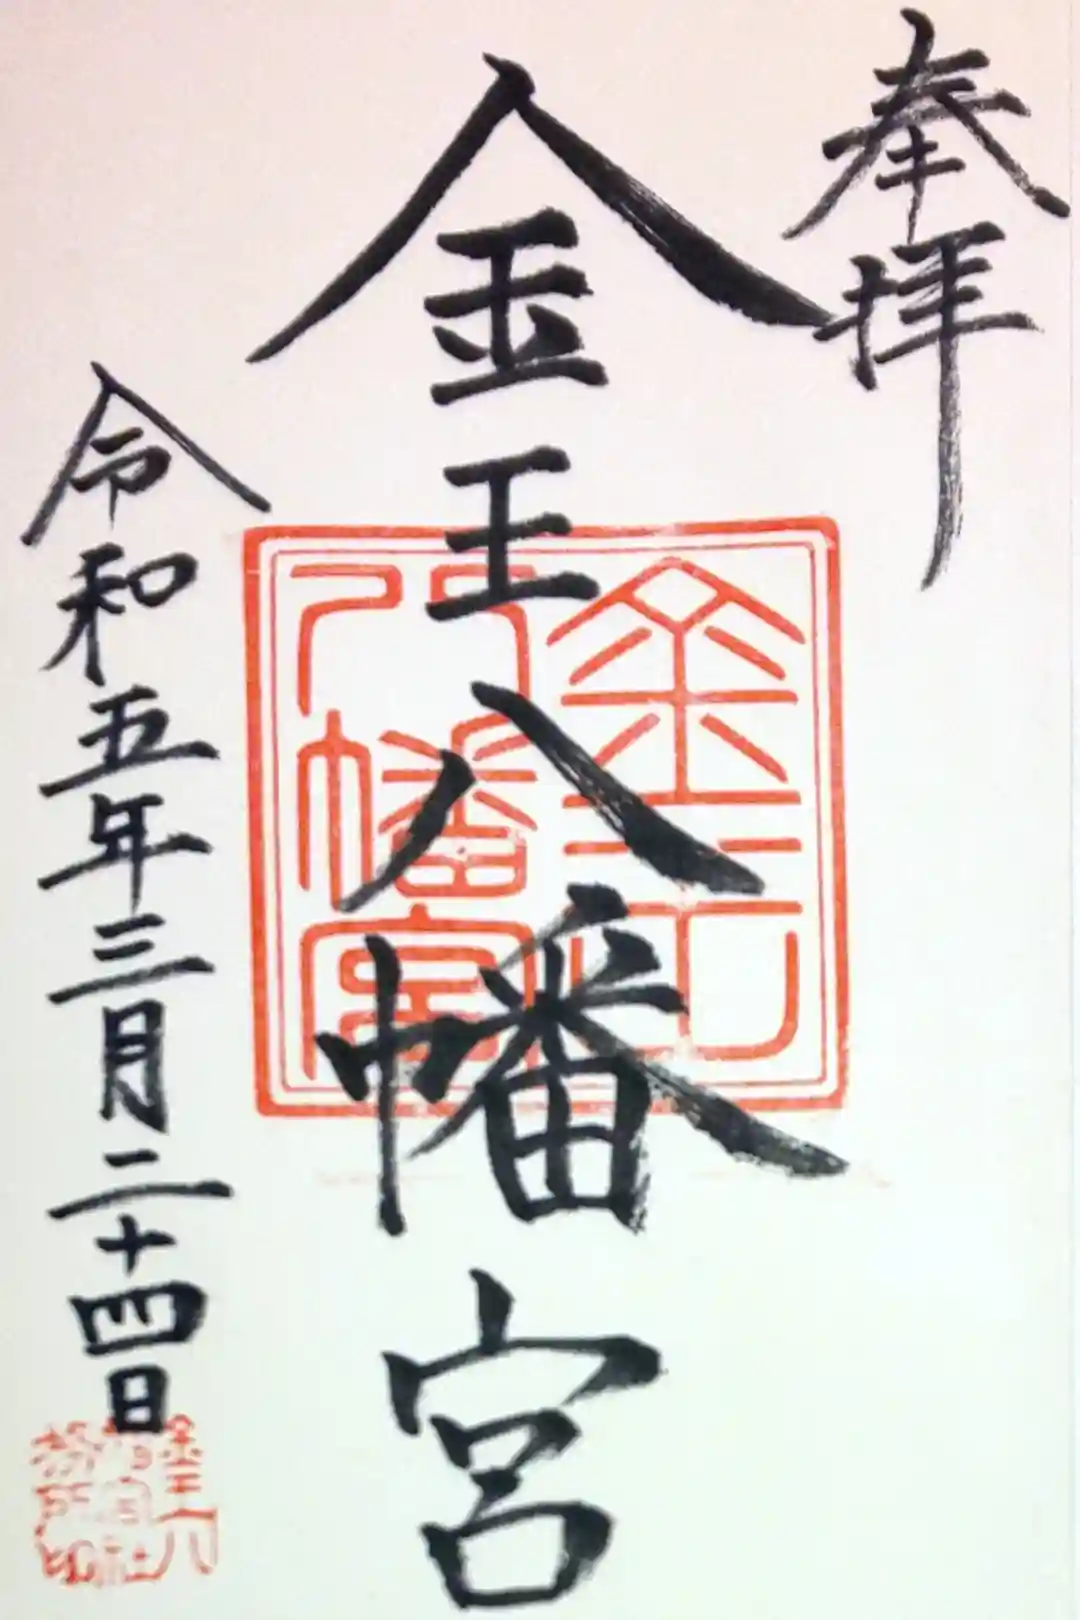 奉拝
金王八幡宮
金王八幡宮
令和五年三月二十四日
金王八幡宮社務所印